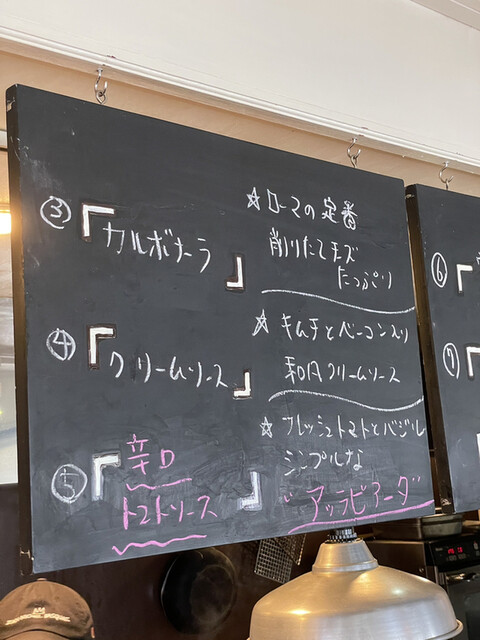 ③
『カルボナーラ』
☆ローマの定番
削りたてチーズ
たっぷり
④
『クリームソース』
☆キムチとベーコン入り
和風クリームソース
⑤
『辛口
トマトソース』
☆フレッシュトマトとバジル
シンプルな
"アッラビアータ"
⑥
『
⑦
『